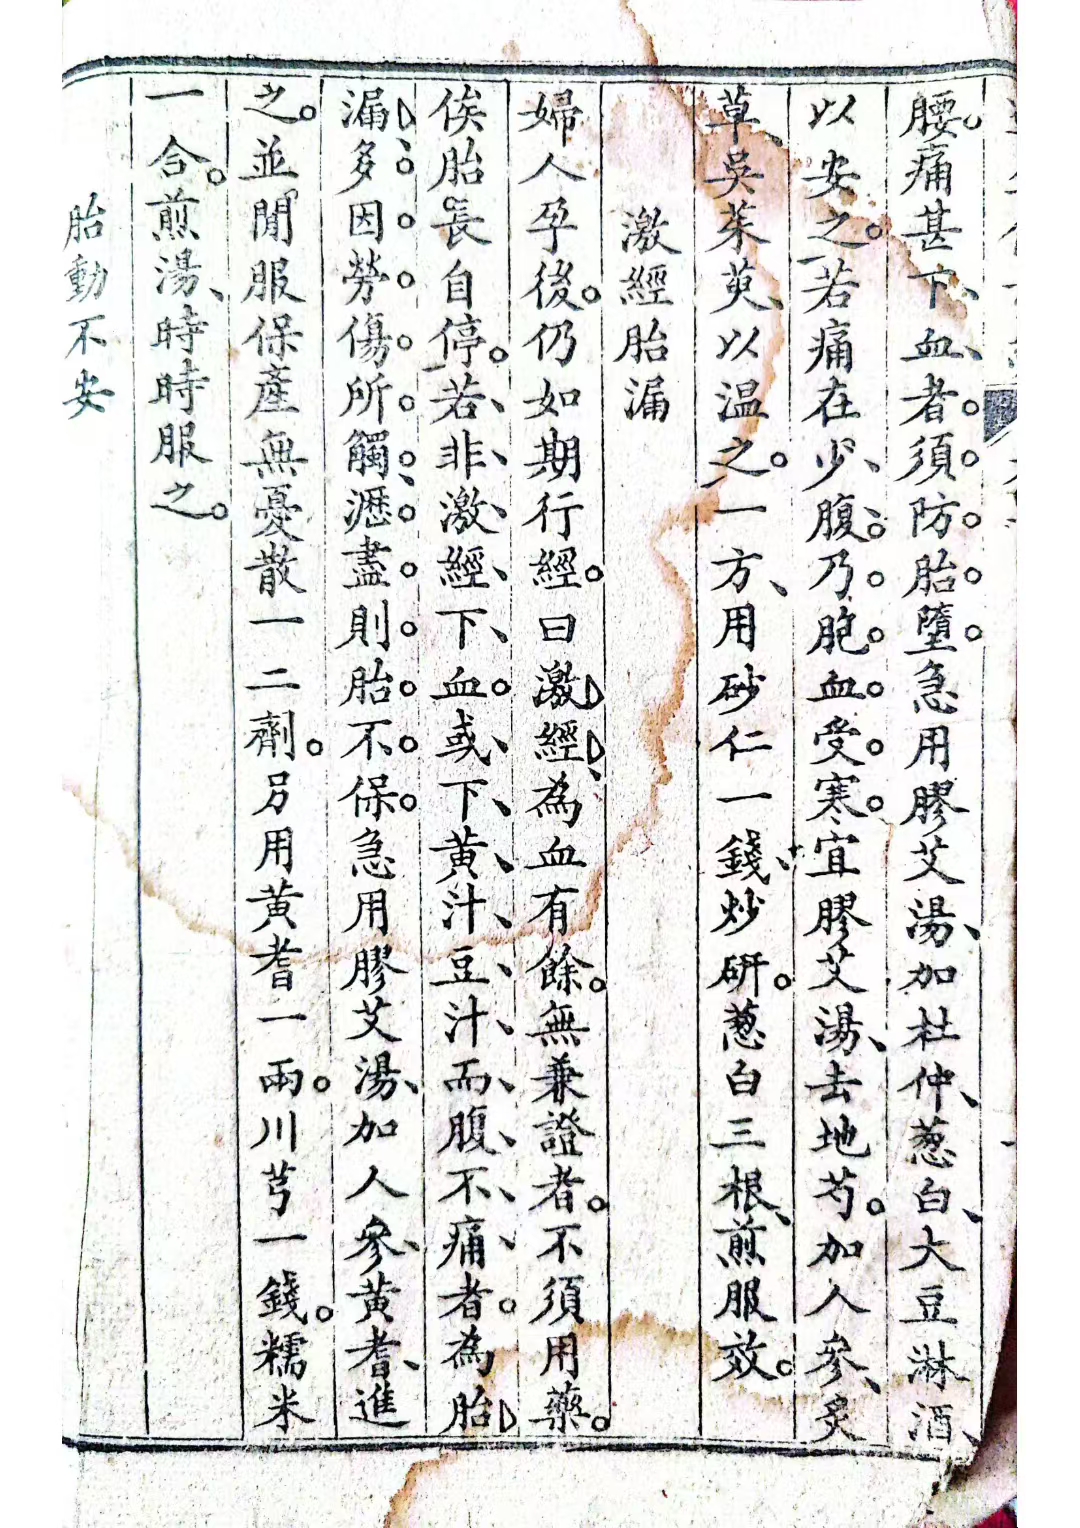 腰。痛甚下、血、者。須。防。胎。墮。急用膠艾湯、加杜仲、葱白、大豆淋酒、
以安之。若痛在少、腹、。乃。胞。血。受。寒。宜膠艾湯、去地芍。加人參、炙
草、吳茱萸、以温之。一方、用砂仁一錢、炒研。葱白三根、煎服效。
激經胎漏
婦人孕後。仍如期行經。曰激經、為血有餘。無兼證者。不須用藥。
俟胎長自停。若、非、激、經、下、血。或、下、黄、汁、豆、汁、而、腹、不、痛、者。為胎
漏、。多。因。勞。傷。所。觸。、瀝。盡。則。胎。不。保。急用膠艾湯、加人參、黄耆、進
之。並間服保產無憂散一二劑。另用黄耆一兩。川芎一錢。糯米
一合。煎湯、時時服之。
胎動不安